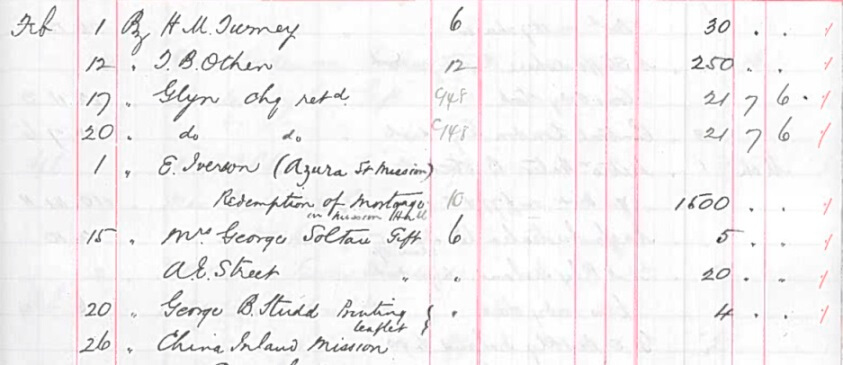 Feb 1 By H. M. Turney 6 30 . . /
12 " T. B. Othen 12 250 . . /
17 " Glyn chq retd. C/48 21 7 6 . /
20 " do do C/48 21 7 6 /
1 " E. Iverson (Azura St Mission)
Redemption of Mortgage 10 1500 . . /
in Mission Hall
15 " Mrs George Soltau Gift 6 5 . . /
A. E. Street " " 20 . . /
20 " George B. Studd Printing { " 4 . . /
leaflet
26 " China Inland Mission